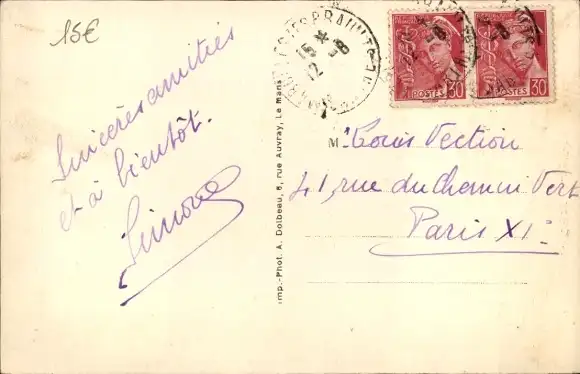 15€
Sincères amitiés
et à bientôt.
Simone
15 * -8
12
POSTES 30
POSTES 30
Imp.-Phot. A. Dolbeau, 8, rue Auvray, Le Mans
M. Louis Vection
41, rue du Chemin Vert
Paris XIe